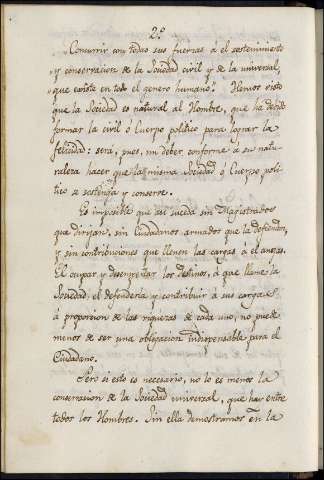 2.º
Concurrir con todas sus fuerzas á el sostenimiento
y conservacion de la Sociedad civil y de la universal,
que existe en todo el genero humano. Hemos visto
que la Sociedad es natural al Hombre, que ha debido
formar la civil ó Cuerpo politico para lograr la
felicidad: será, pues, un deber conforme á su natu-
raleza hacer que la misma Sociedad ó Cuerpo poli-
tico se sostenga y conserve.
Es imposible que asi suceda sin Magistrados
que dirijan, sin Ciudadanos armados que la defiendan,
y sin contribuciones que llenen las cargas á el
El ocupar y desempeñar los destinos, á que llame la
Sociedad, el defenderla y contribuir á sus cargas
á proporcion de las riquezas de cada uno, no puede
menos de ser una obligacion indispensable para el
Ciudadano.
Pero si esto es necesario, no lo es menos la
conservacion de la Sociedad universal, que hay entre
todos los Hombres. Sin ella demostramos en la